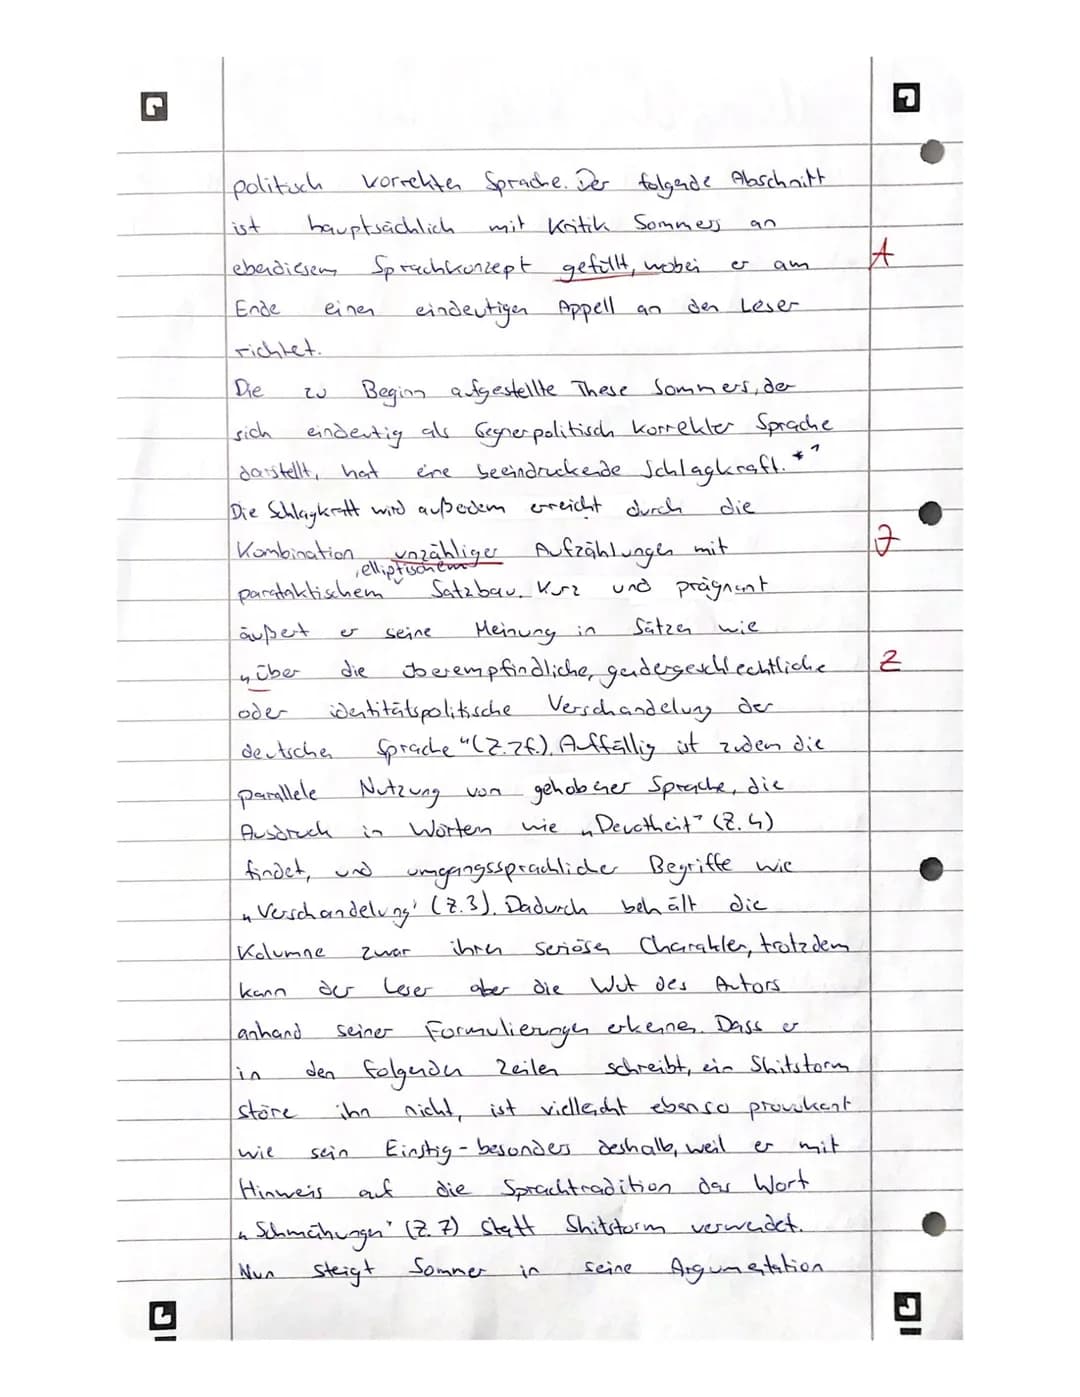 politisch korrekten Sprache. Der folgende Abschnitt
ist hauptsächlich mit Kritik Sommers an
ebendiesem Sprachkonzept gefüllt, wobei er am
A
Ende einen eindeutigen Appell an den Leser
richtet.
Die zu Beginn aufgestellte These Sommers, der
sich eindeutig als Gegner politisch korrekter Sprache
darstellt, hat eine beeindruckende Schlagkraft. *1
Die Schlagkraft wird außerdem erreicht durch die
Kombination unzähliger Aufzählungen mit
, elliptischem
parataktischem Satzbau. Kurz und prägnant
äußert er seine Meinung in Sätzen wie
„Über die überempfindliche, gendergeschlechtliche
Z
oder identitätspolitische Verschandelung der
deutschen Sprache“ (Z.2f.). Auffällig ist zudem die
parallele Nutzung von gehobener Sprache, die
Ausdruck in Wörtern wie „Devotheit“ (Z. 4)
findet, und umgangssprachlicher Begriffe wie
„Verschandelung“ (Z.3). Dadurch behält die
Kolumne zwar ihren seriösen Charakter, trotzdem
kann der Leser aber die Wut des Autors
anhand seiner Formulierungen erkennen. Dass er
in den folgenden Zeilen schreibt, ein Shitstorm
störe ihn nicht, ist vielleicht ebenso provokant
wie sein Einstig - besonders deshalb, weil er mit
Hinweis auf die Sprachtradition das Wort
„Schmähungen“ (Z. 7) statt Shitstorm verwendet.
Nun steigt Sommer in seine Argumentation